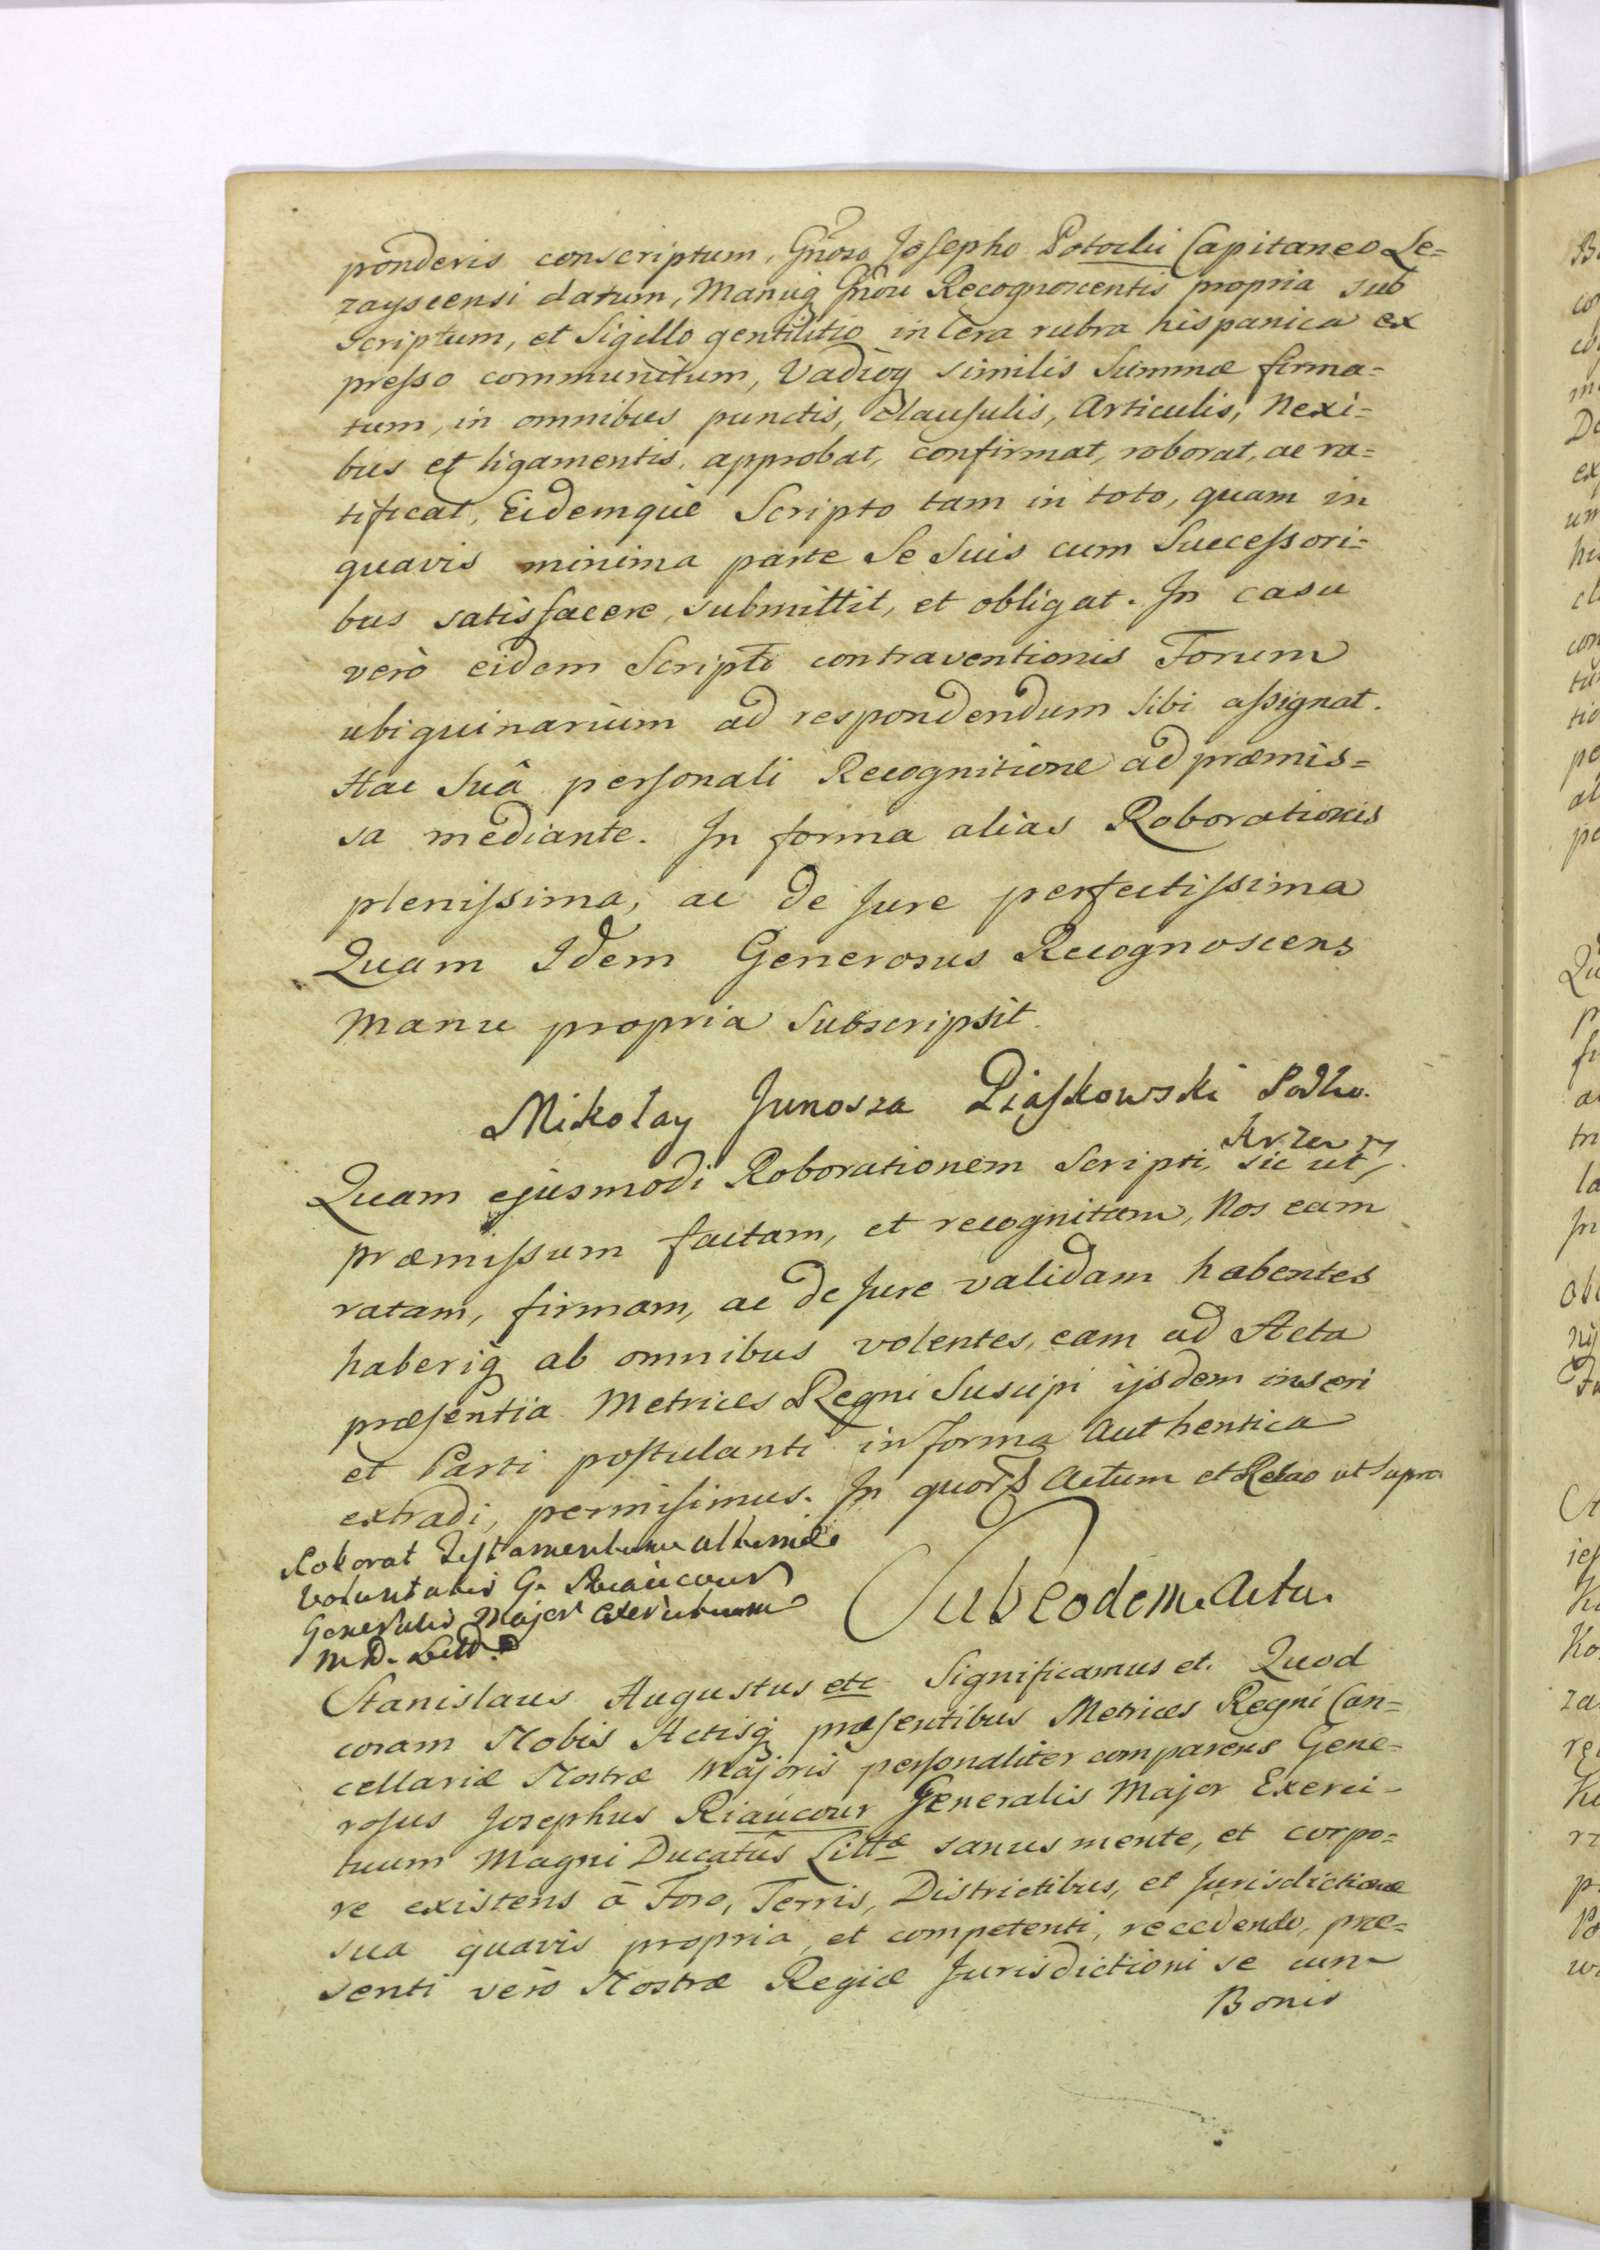 ponderis conscriptum, Gñoso Josepho Potocki Capitaneo Le=
zayscensi datum, Manuq Gñosi Recognoscentis propria sub
scriptum, et Sigillo gentilitio in Cera rubra hispanica ex
presso communitum, Vadioq similis Summæ firma=
tum, in omnibus punctis, Clausulis, Articulis, Nexi=
bus et ligamentis, approbat, confirmat, roborat, ac ra=
tificat, Eidemque Scripto tam in toto, quam in
quavis minima parte Se Suis cum Successori=
bus satisfacere, submittit, et obligat. In casu
verò eidem Scripto contraventionis Forum
ubiquinarium ad respondendum Sibi assignat.
Hac Suâ personali Recognitione ad præmis=
sa mediante. In forma alias Roborationis
plenissima, ac de Jure perfectissima
Quam Idem Generosus Recognoscens
Manu propria Subscripsit
Mikołay Junosza Piaskowski Podko.
Krzem
Quam ejusmodi Roborationem Scripti, sic ut
præmissum factam, et recognitam, Nos eam
ratam, firmam, ac de Jure validam habentes
haberiq ab omnibus volentes, eam ad Acta
præsentia Metrices Regni Suscipi ijsdem inseri
et Parti postulanti in forma Authentica
extradi, permisimus. In quor Actum et Relao ut supra
Roborat Testamentum ultimæ
Voluntatis G. Riaucour
Generalis Major Exercituum
M. D. Litt.
Sub eodem Actu.
Stanislaus Augustus etc Significamus et. Quod
coram Nobis Actisq præsentibus Metrices Regni Can=
cellariæ Nostræ Majoris personaliter comparens Gene=
rosus Josephus Riaucour Generalis Major Exerci=
tuum Magni Ducatûs Littæ sanus mente, et corpo=
re existens â Foro, Terris, Districtibus, et Jurisdictione
sua quavis propria, et competenti, recedendo, præ=
senti verò Nostræ Regiæ Jurisdictioni se cum
Bonis